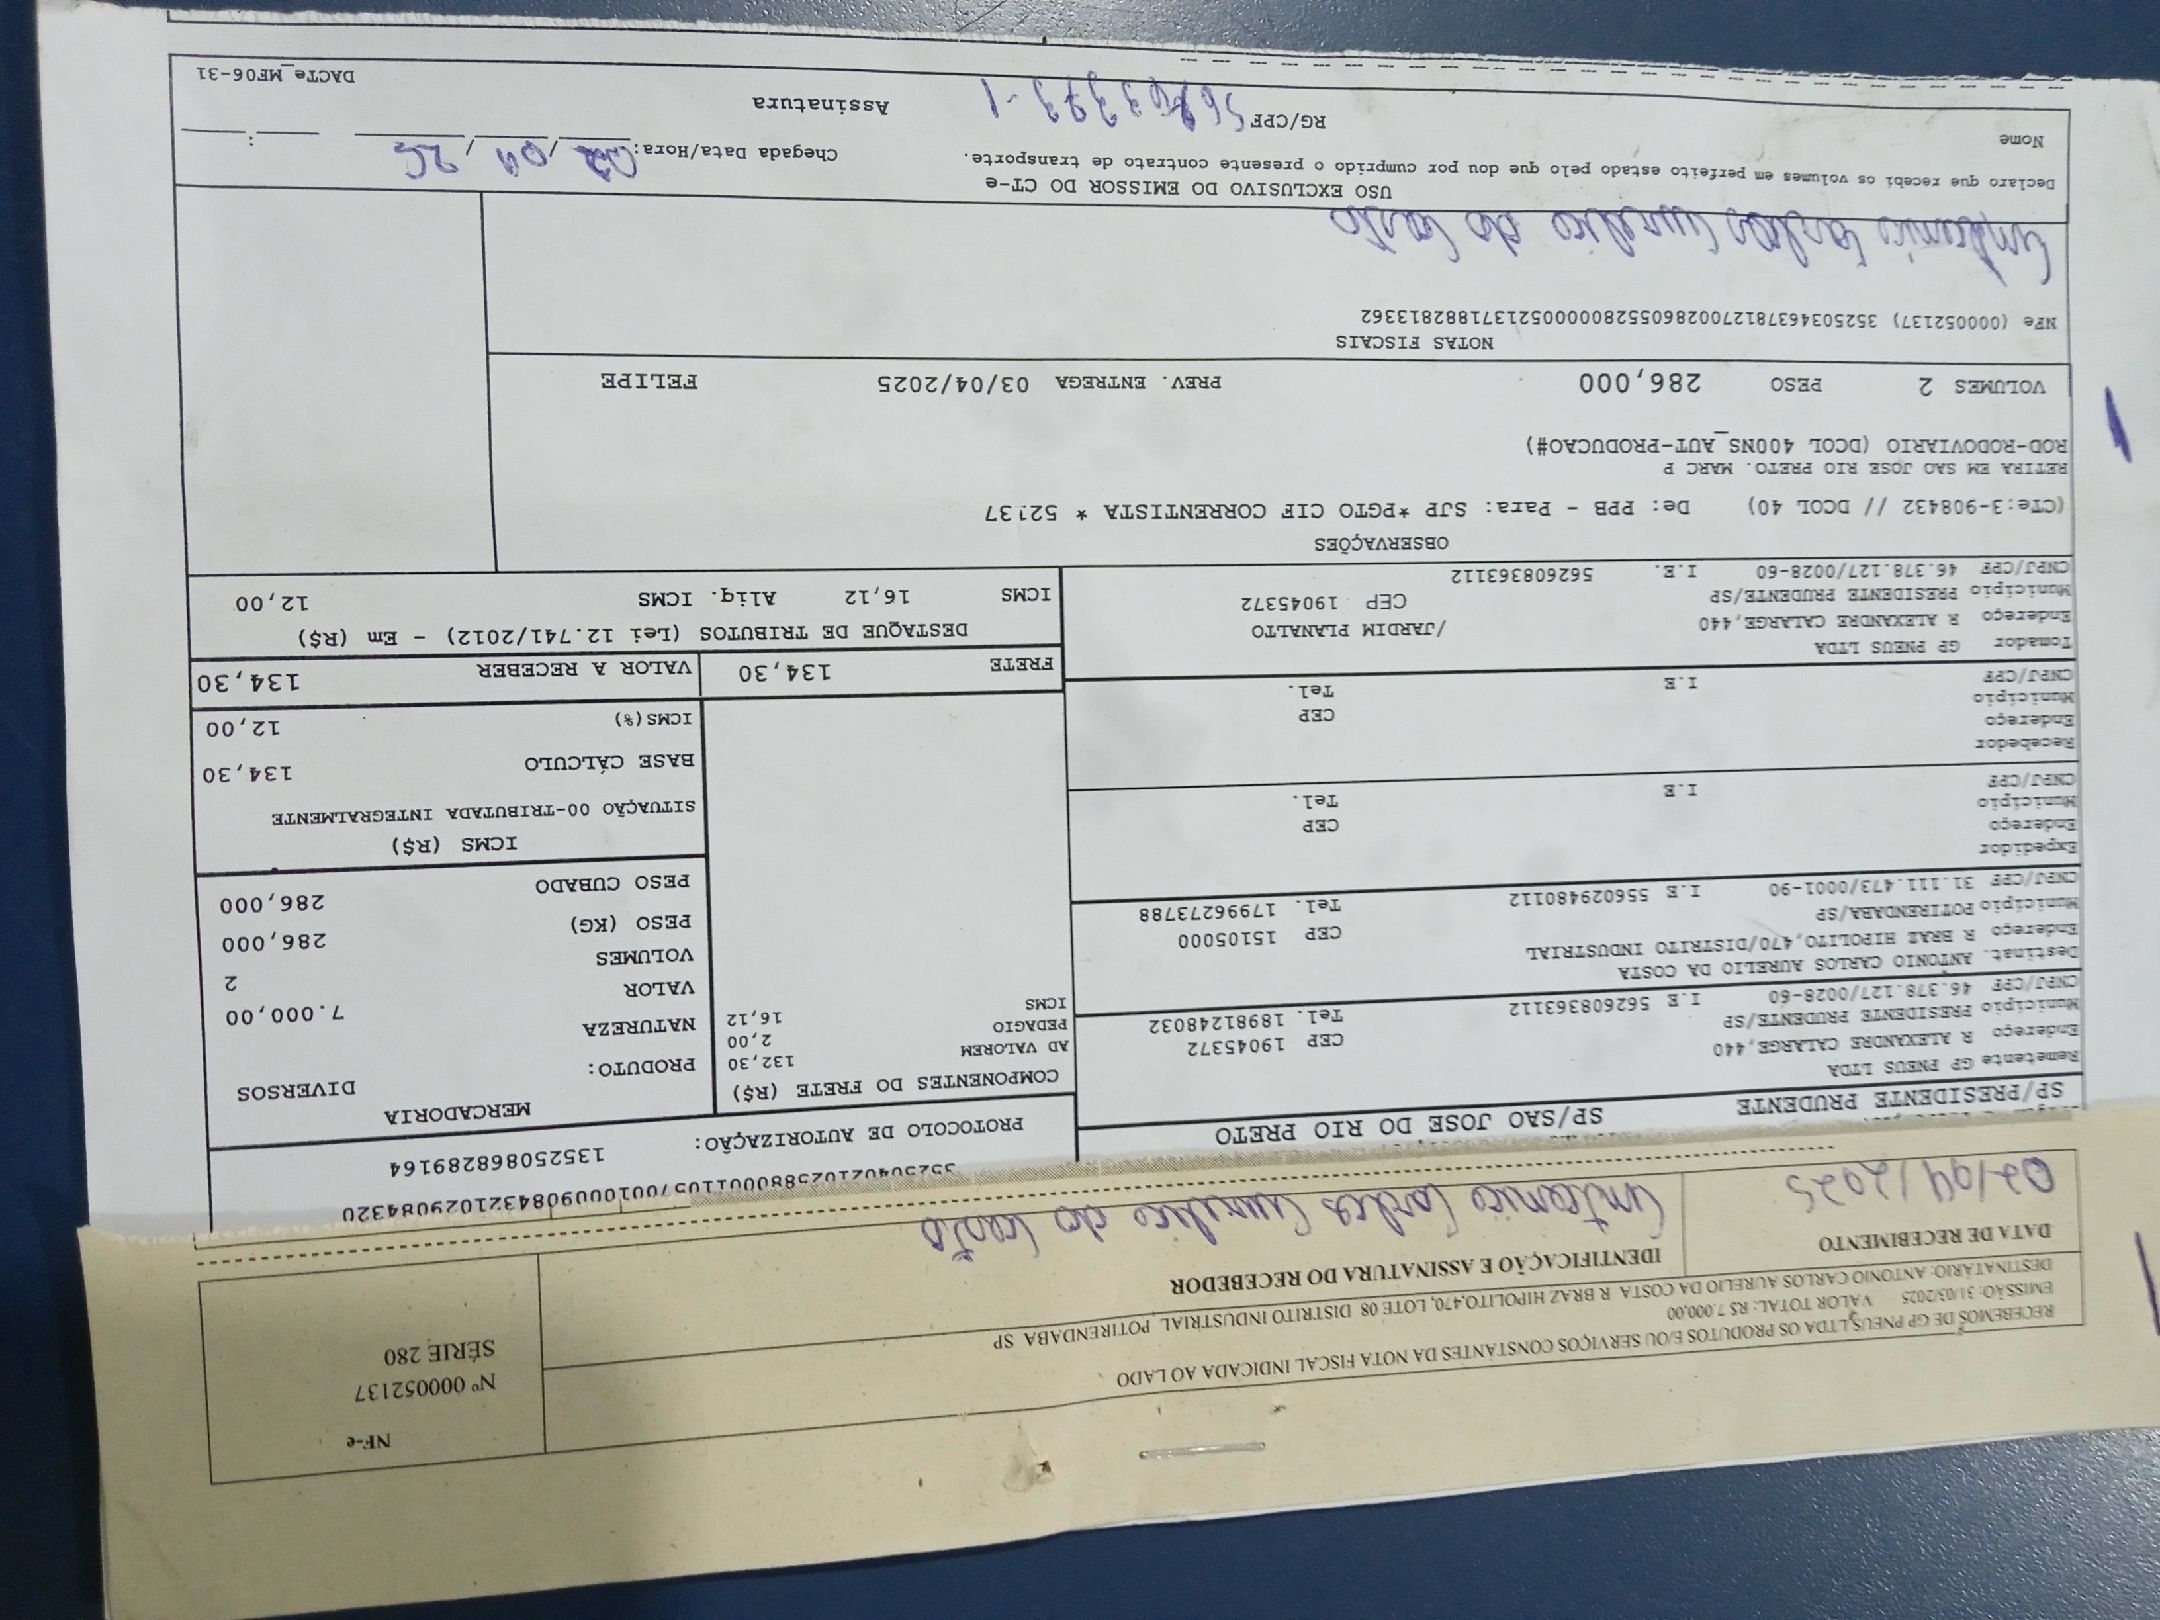 NF-e
Nº 000052137
SÉRIE 280
RECEBEMOS DE GP PNEUS LTDA OS PRODUTOS E/OU SERVIÇOS CONSTANTES DA NOTA FISCAL INDICADA AO LADO
EMISSÃO: 31/03/2025 VALOR TOTAL: R$ 7.000,00
DESTINATÁRIO: ANTONIO CARLOS AURELIO DA COSTA R BRAZ HIPOLITO,470, LOTE 08 DISTRITO INDUSTRIAL POTIRENDABA SP
DATA DE RECEBIMENTO
IDENTIFICAÇÃO E ASSINATURA DO RECEBEDOR
02/04/2025
Antonio Carlos Aurelio da Costa
SP/PRESIDENTE PRUDENTE SP/SAO JOSE DO RIO PRETO
Remetente GP PNEUS LTDA
Endereço R ALEXANDRE CALARGE,440 CEP 19045372
Município PRESIDENTE PRUDENTE/SP Tel. 18981248032
CNPJ/CPF 46.378.127/0028-60 I.E 562608363112
Destinat. ANTONIO CARLOS AURELIO DA COSTA
Endereço R BRAZ HIPOLITO,470/DISTRITO INDUSTRIAL CEP 15105000
Município POTIRENDABA/SP Tel. 17996273788
CNPJ/CPF 31.111.473/0001-90 I.E 556029480112
Expedidor
Endereço CEP
Município Tel.
CNPJ/CPF I.E
Recebedor
Endereço CEP
Município Tel.
CNPJ/CPF I.E
Tomador GP PNEUS LTDA
Endereço R ALEXANDRE CALARGE,440 /JARDIM PLANALTO
Município PRESIDENTE PRUDENTE/SP CEP 19045372
CNPJ/CPF 46.378.127/0028-60 I.E. 562608363112
PROTOCOLO DE AUTORIZAÇÃO: 135250868289164
COMPONENTES DO FRETE (R$)
AD VALOREM 132,30
PEDAGIO 2,00
ICMS 16,12
MERCADORIA
PRODUTO: DIVERSOS
NATUREZA
VALOR 7.000,00
VOLUMES 2
PESO (KG) 286,000
PESO CUBADO 286,000
ICMS (R$)
SITUAÇÃO 00-TRIBUTADA INTEGRALMENTE
BASE CÁLCULO 134,30
ICMS(%) 12,00
FRETE 134,30 VALOR A RECEBER 134,30
DESTAQUE DE TRIBUTOS (Lei 12.741/2012) - Em (R$)
ICMS 16,12 Aliq. ICMS 12,00
OBSERVAÇÕES
(CTe:3-908432 // DCOL 40) De: PPB - Para: SJP *PGTO CIF CORRENTISTA * 52137
RETIRA EM SAO JOSE RIO PRETO. MARC P
ROD-RODOVIARIO (DCOL 400NS_AUT-PRODUCAO#)
VOLUMES 2 PESO 286,000 PREV. ENTREGA 03/04/2025 FELIPE
NOTAS FISCAIS
NFe (000052137) 35250346378127002860552800000521371882813362
Antonio Carlos Aurelio da Costa
USO EXCLUSIVO DO EMISSOR DO CT-e
Declaro que recebi os volumes em perfeito estado pelo que dou por cumprido o presente contrato de transporte.
Chegada Data/Hora: 02/04/25 :
Nome
RG/CPF
Assinatura
DACTe_MF06-31